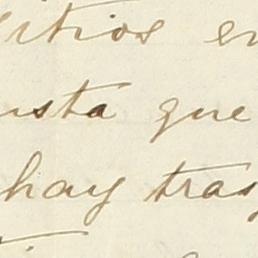 sitios en
usta que
hay tras